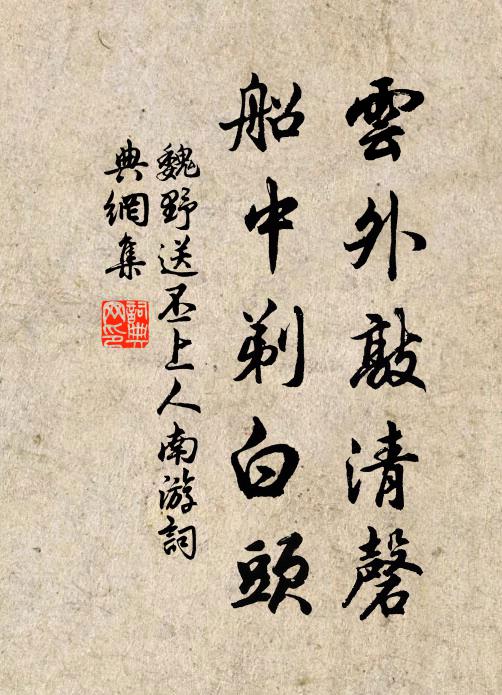 雲外敲清磬
船中剃白頭
魏野送丕上人南游詞
典網集
詞典網印